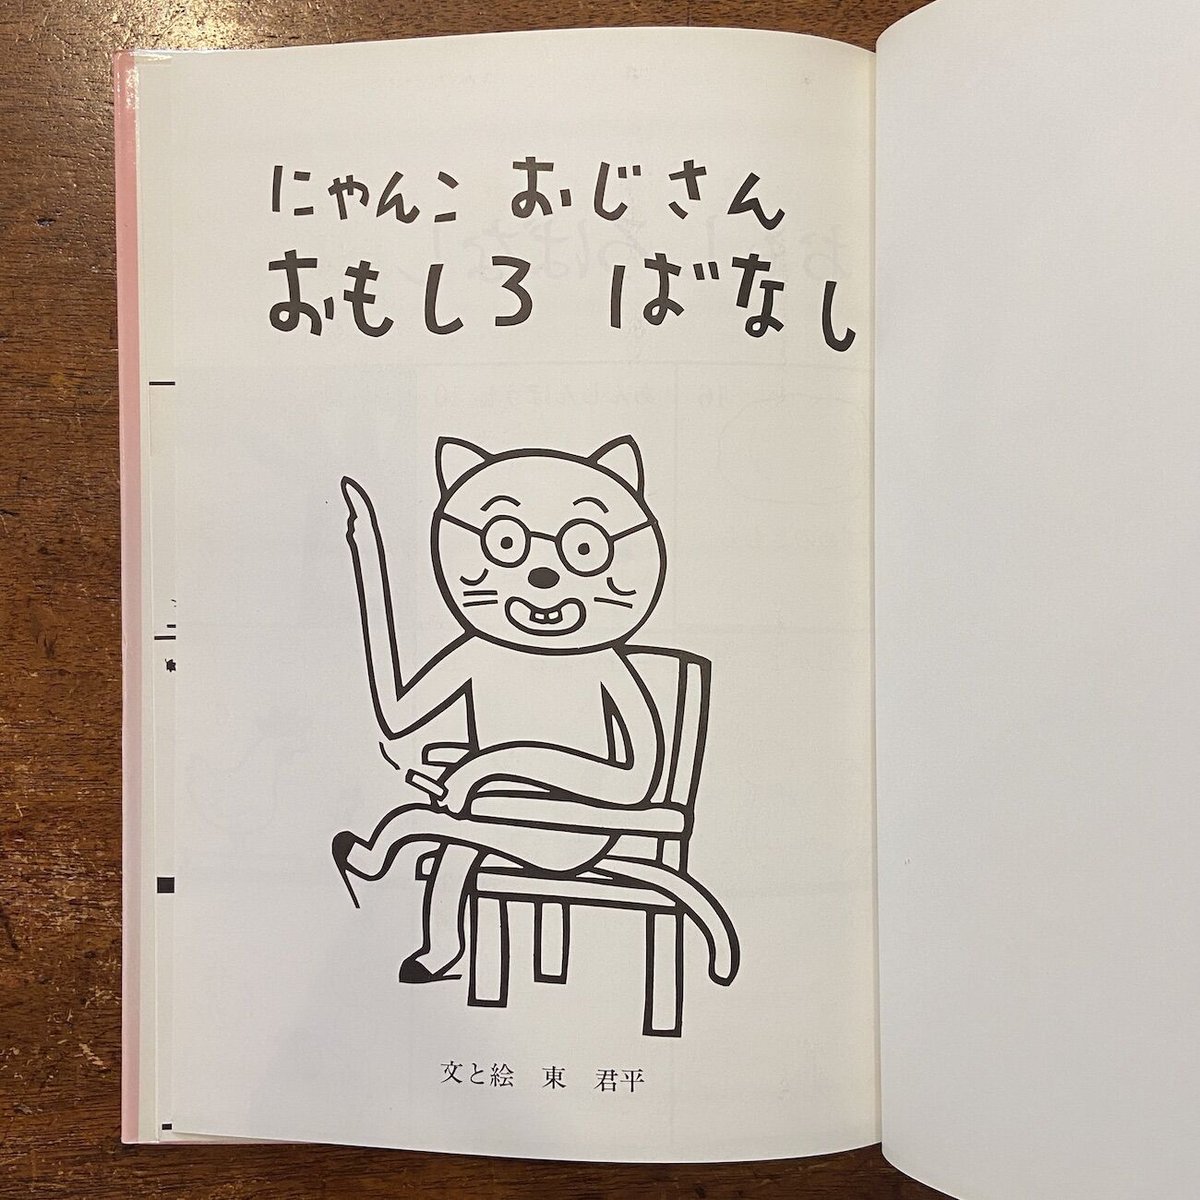 にゃんこ おじさん
おもしろ ばなし
文と絵　東　君平